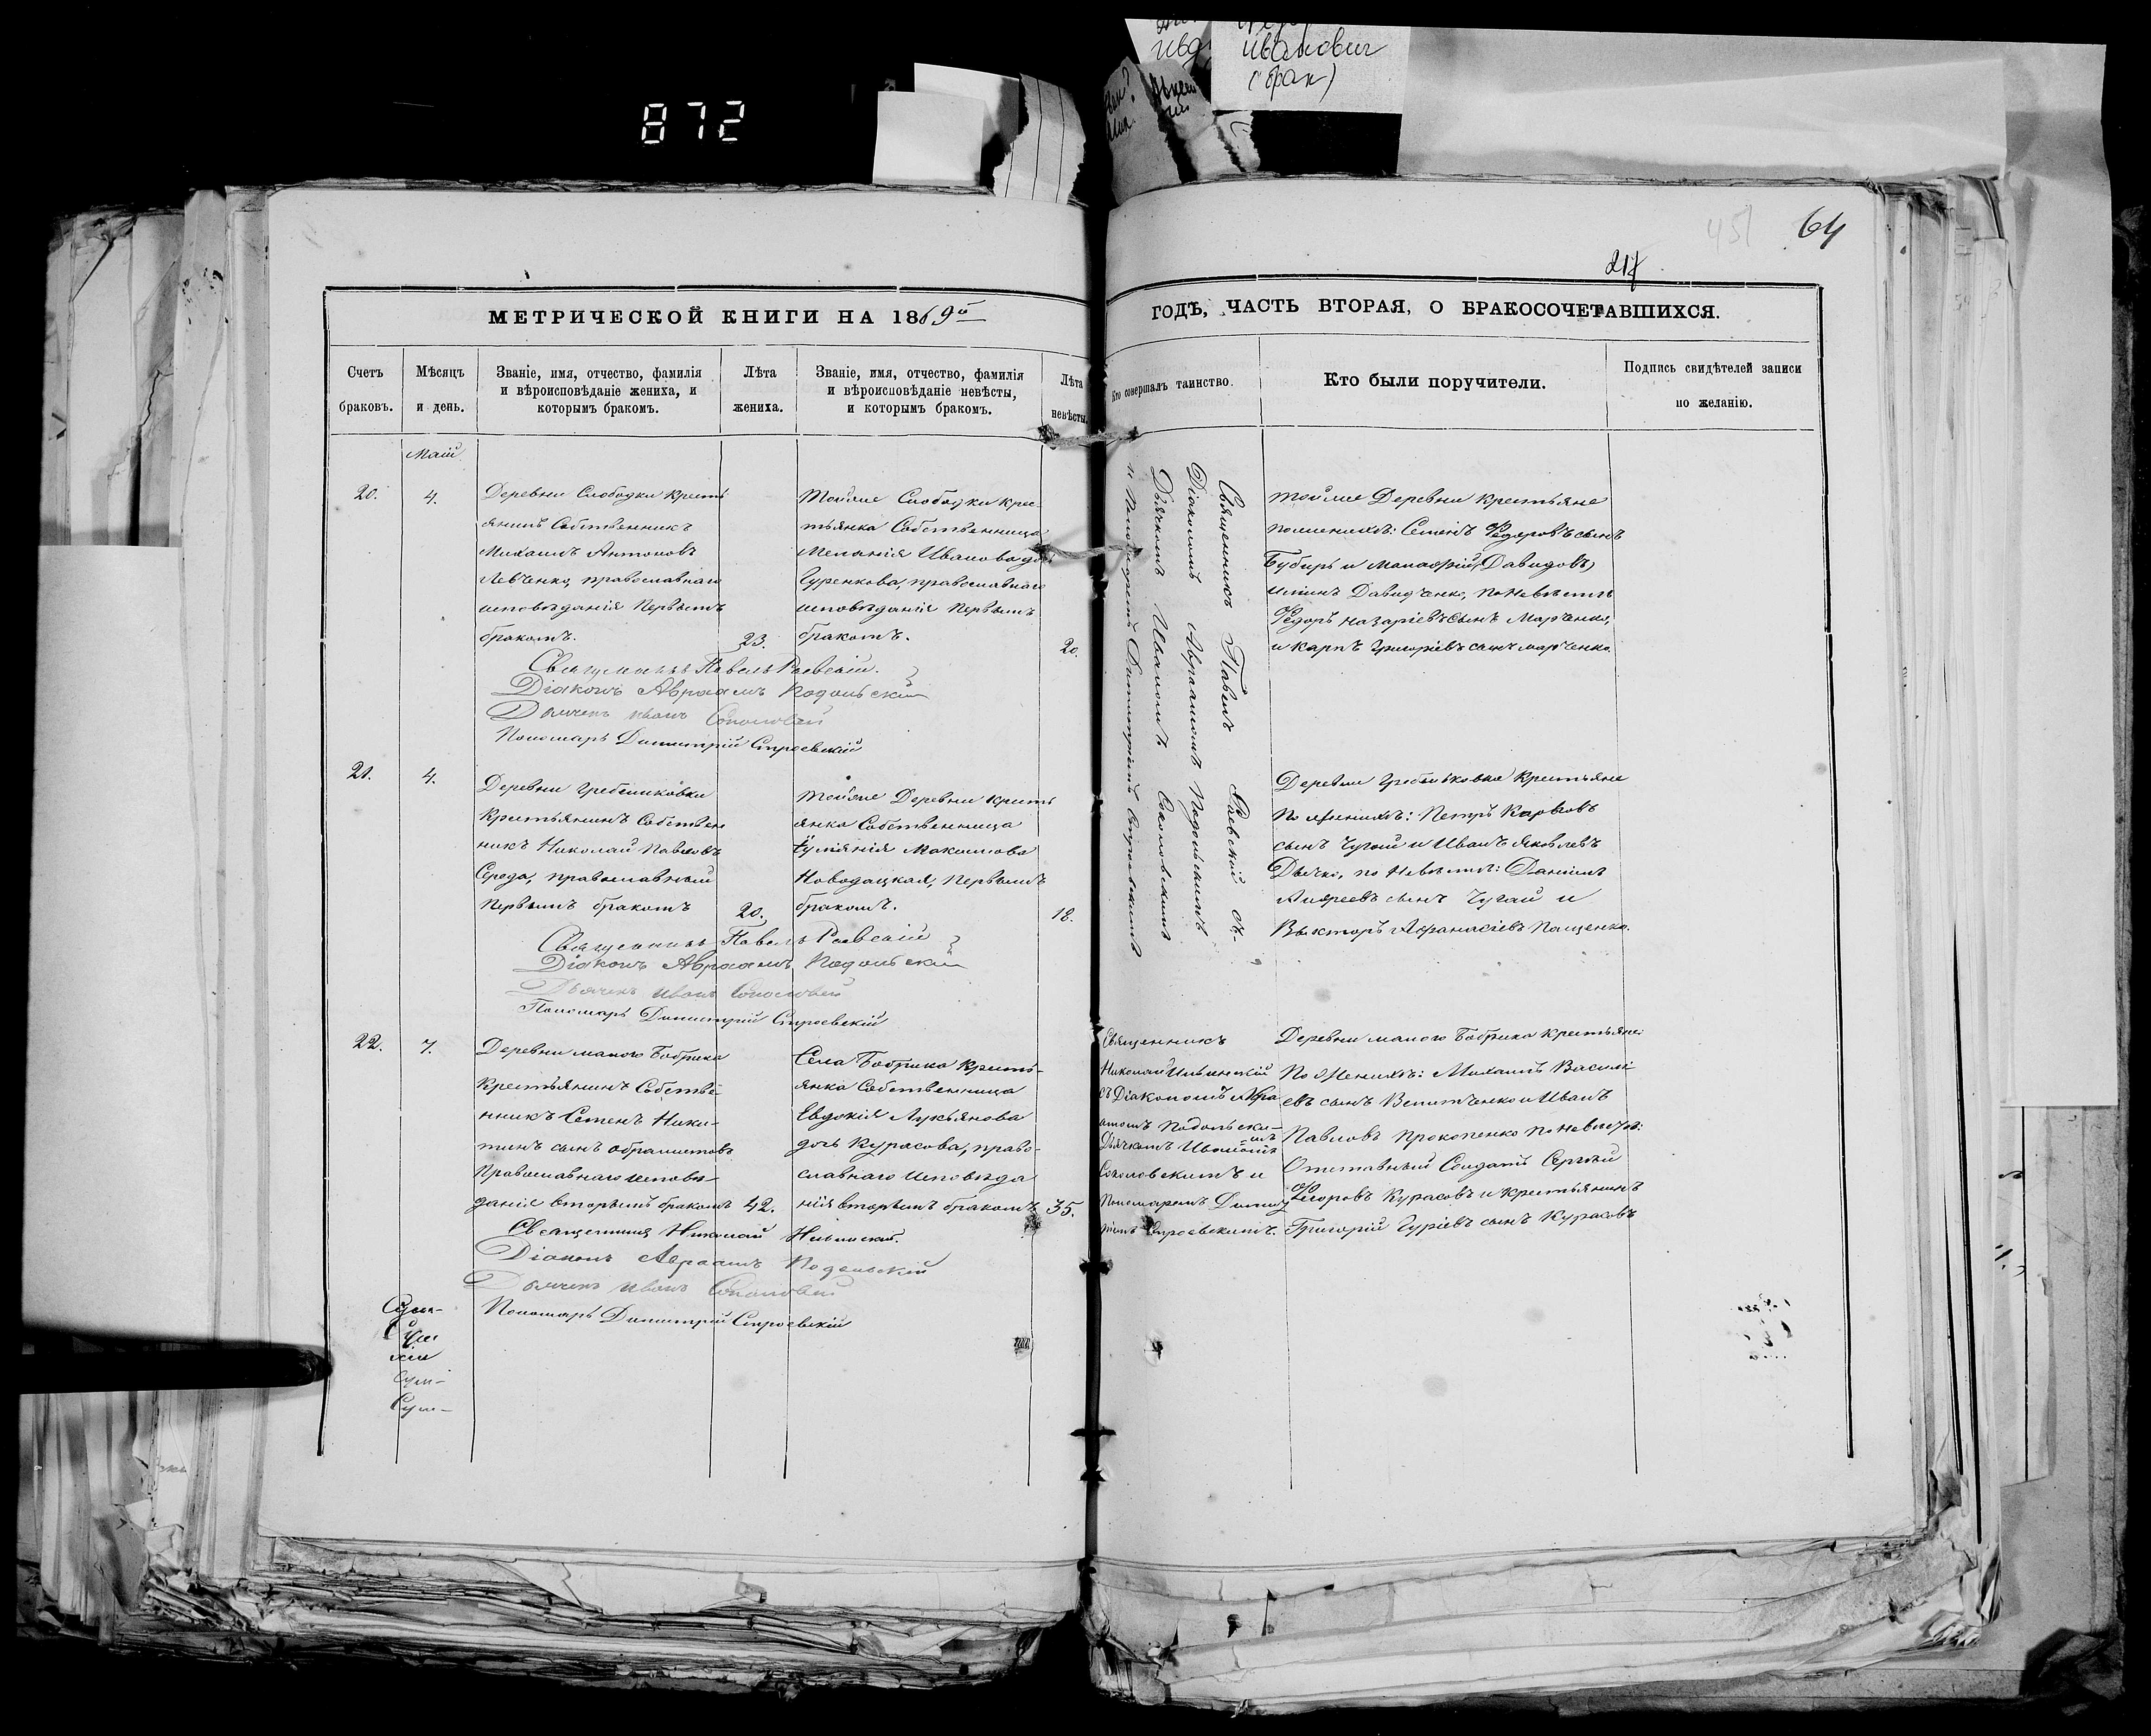 872
Иванович
(брак)
64
217
МЕТРИЧЕСКОЙ КНИГИ НА 1869й
ГОДЪ, ЧАСТЬ ВТОРАЯ, О БРАКОСОЧЕТАВШИХСЯ.
Счетъ браковъ.
Мѣсяцъ и день.
Званіе, имя, отчество, фамилія
и вѣроисповѣданіе жениха, и
которымъ бракомъ.
Лѣта жениха.
Званіе, имя, отчество, фамилія
и вѣроисповѣданіе невѣсты,
и которымъ бракомъ.
Лѣта невѣсты.
Кто совершалъ таинство.
Кто были поручители.
Подпись свидѣтелей записи
по желанію.
Маій
20.
4.
Деревни Слободки кресть
янинъ Собственникъ
Михаилъ Антоновъ
Левченко, православнаго
исповѣданія первымъ
бракомъ.
23.
Тойже Слободки крес
тьянка Собственница
Меланія Иванова дочь
Гуренкова, православнаго
исповѣданія первымъ
бракомъ.
20.
Священникъ Павелъ Раевскій съ
Діакономъ Авраамомъ Подольскимъ
Дьячкомъ Иваномъ Соколовскимъ
и Пономаремъ Димитріемъ Строевскимъ
тойже Деревни крестьяне
по женихѣ: Семенъ Федоровъ сынъ
Бубырь и Давидовъ
сынъ Давидченко, по невѣстѣ
Федоръ Назаріевъ сынъ Марченко,
и Карпъ Григоріевъ сынъ Марченко.
Священникъ Павелъ Раевскій.
Діаконъ Авраамъ Подольскій
Дьячекъ Иванъ
Пономарь Димитрій Строевскій
21.
4.
Деревни Гребениковки
Крестьянинъ Собствен
никъ Николай Павловъ
Середа, православный
первымъ бракомъ
20.
тойже Деревни кресть
янка Собственница
Максимова
Новодацкая, первымъ
бракомъ.
18.
Деревни Гребениковки крестьяне
По женихѣ: Петръ Карповъ
сынъ Чугай и Иванъ Яковлевъ
по невѣстѣ: Даніилъ
Андреевъ сынъ Чугай и
Викторъ Афанасіевъ Пащенко.
Священникъ Павелъ Раевскій
Діаконъ Авраамъ Подольскій
Дьячекъ Иванъ
Пономарь Димитрій Строевскій
22.
7.
Деревни малого Бобрика
Крестьянинъ Собстве-
нникъ Семенъ Ники-
тинъ сынъ
Православнаго исповѣ
данія вторымъ бракомъ
42.
Села Бобрика кресть-
янка Собственница
Евдокія Лукьянова
дочь Курасова, право-
славнаго исповѣда
нія вторымъ бракомъ
35.
Священникъ
Николай Ильинскій
съ Діакономъ Авра
амомъ Подольски-
мъ
Дьячкомъ Иваномъ
Соколовскимъ и
Пономаремъ Димит
ріемъ Строевскимъ.
Деревни малого Бобрика крестьяне:
По женихѣ: Михаилъ Василі
евъ сынъ и Иванъ
Павловъ Прокопенко по невѣстѣ:
Отставный Солдатъ Сергѣй
Федоровъ Курасовъ и крестьянинъ
Григорій Гуріевъ сынъ Курасовъ
Священникъ Николай Ильинскій.
Діаконъ Авраамъ Подольскій
Дьячекъ Иванъ
Пономарь Димитрій Строевскій